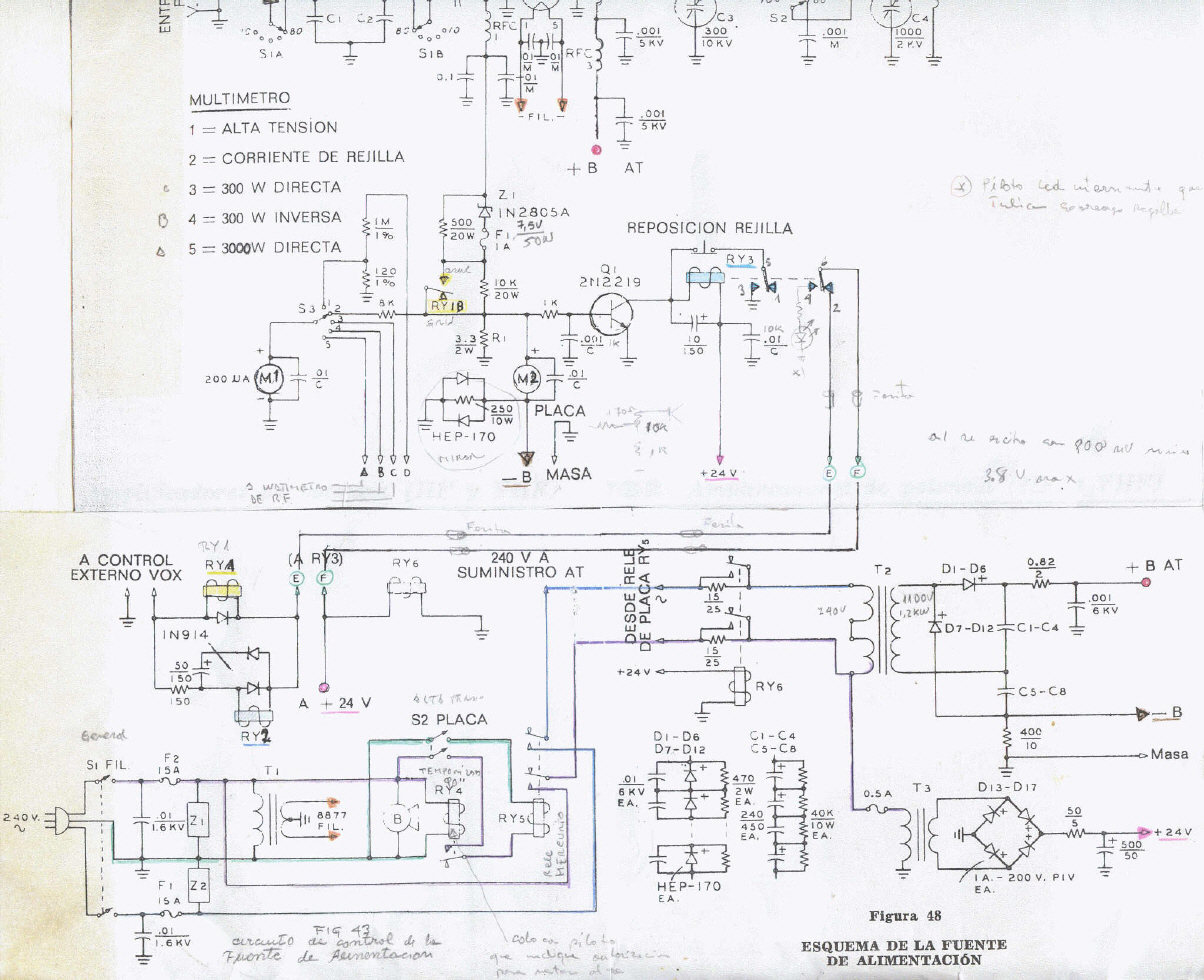 ENTR
C1
C2
S1A
80
S1B
RFC
1
1
5
.01
M
.01
M
RFC
3
.001
5KV
C3
300
10KV
S2
.001
M
C4
1000
2KV
0.1
.01
M
- FIL. -
.001
5KV
+ B AT
MULTIMETRO
1 = ALTA TENSION
2 = CORRIENTE DE REJILLA
C 3 = 300 W DIRECTA
B 4 = 300 W INVERSA
A 5 = 3000W DIRECTA
1M
1%
120
1%
500
20W
Z1
1N2805A
7,5V
50W
F1
1A
10K
20W
RY1B
S3
1
2
3
4
5
8K
1K
3.3
2W
R1
Q1
2N2219
.001
C
1K
REPOSICION REJILLA
RY3
5
3
1
6
4
2
10
150
.01
C
10K
200 UA
M1
.01
C
M2
.01
C
PLACA
250
10W
HEP-170
MIRAR
10K
- B
MASA
+24V
E
F
A B C D
DE RF
38 V
A CONTROL
EXTERNO VOX
RY1
RY1
(A RY3)
E
F
RY6
240 V A
SUMINISTRO AT
DESDE RELE
DE PLACA RY5
1N914
50
150
150
RY2
A + 24 V
15
25
15
25
+24V
RY6
T2
240V
1100V
1,2KW
D1-D6
D7-D12
0.82
2
C1-C4
C5-C8
.001
6KV
+ B AT
- B
400
10
Masa
S2 PLACA
General
S1 FIL.
F2
15A
240V.
.01
1.6KV
Z1
T1
8877
FIL.
B
RY4
RY5
Rele
Mercurio
F1
15A
Z2
.01
1.6KV
FIG 43
circuito de control de la
Fuente de Alimentacion
D1-D6
D7-D12
.01
6KV
EA.
470
2W
EA.
HEP-170
EA.
C1-C4
C5-C8
240
450
EA.
40K
10W
EA.
0.5A
T3
D13-D17
1A.-200V. PIV
EA.
50
5
500
50
+24V
Figura 48
ESQUEMA DE LA FUENTE
DE ALIMENTACIÓN